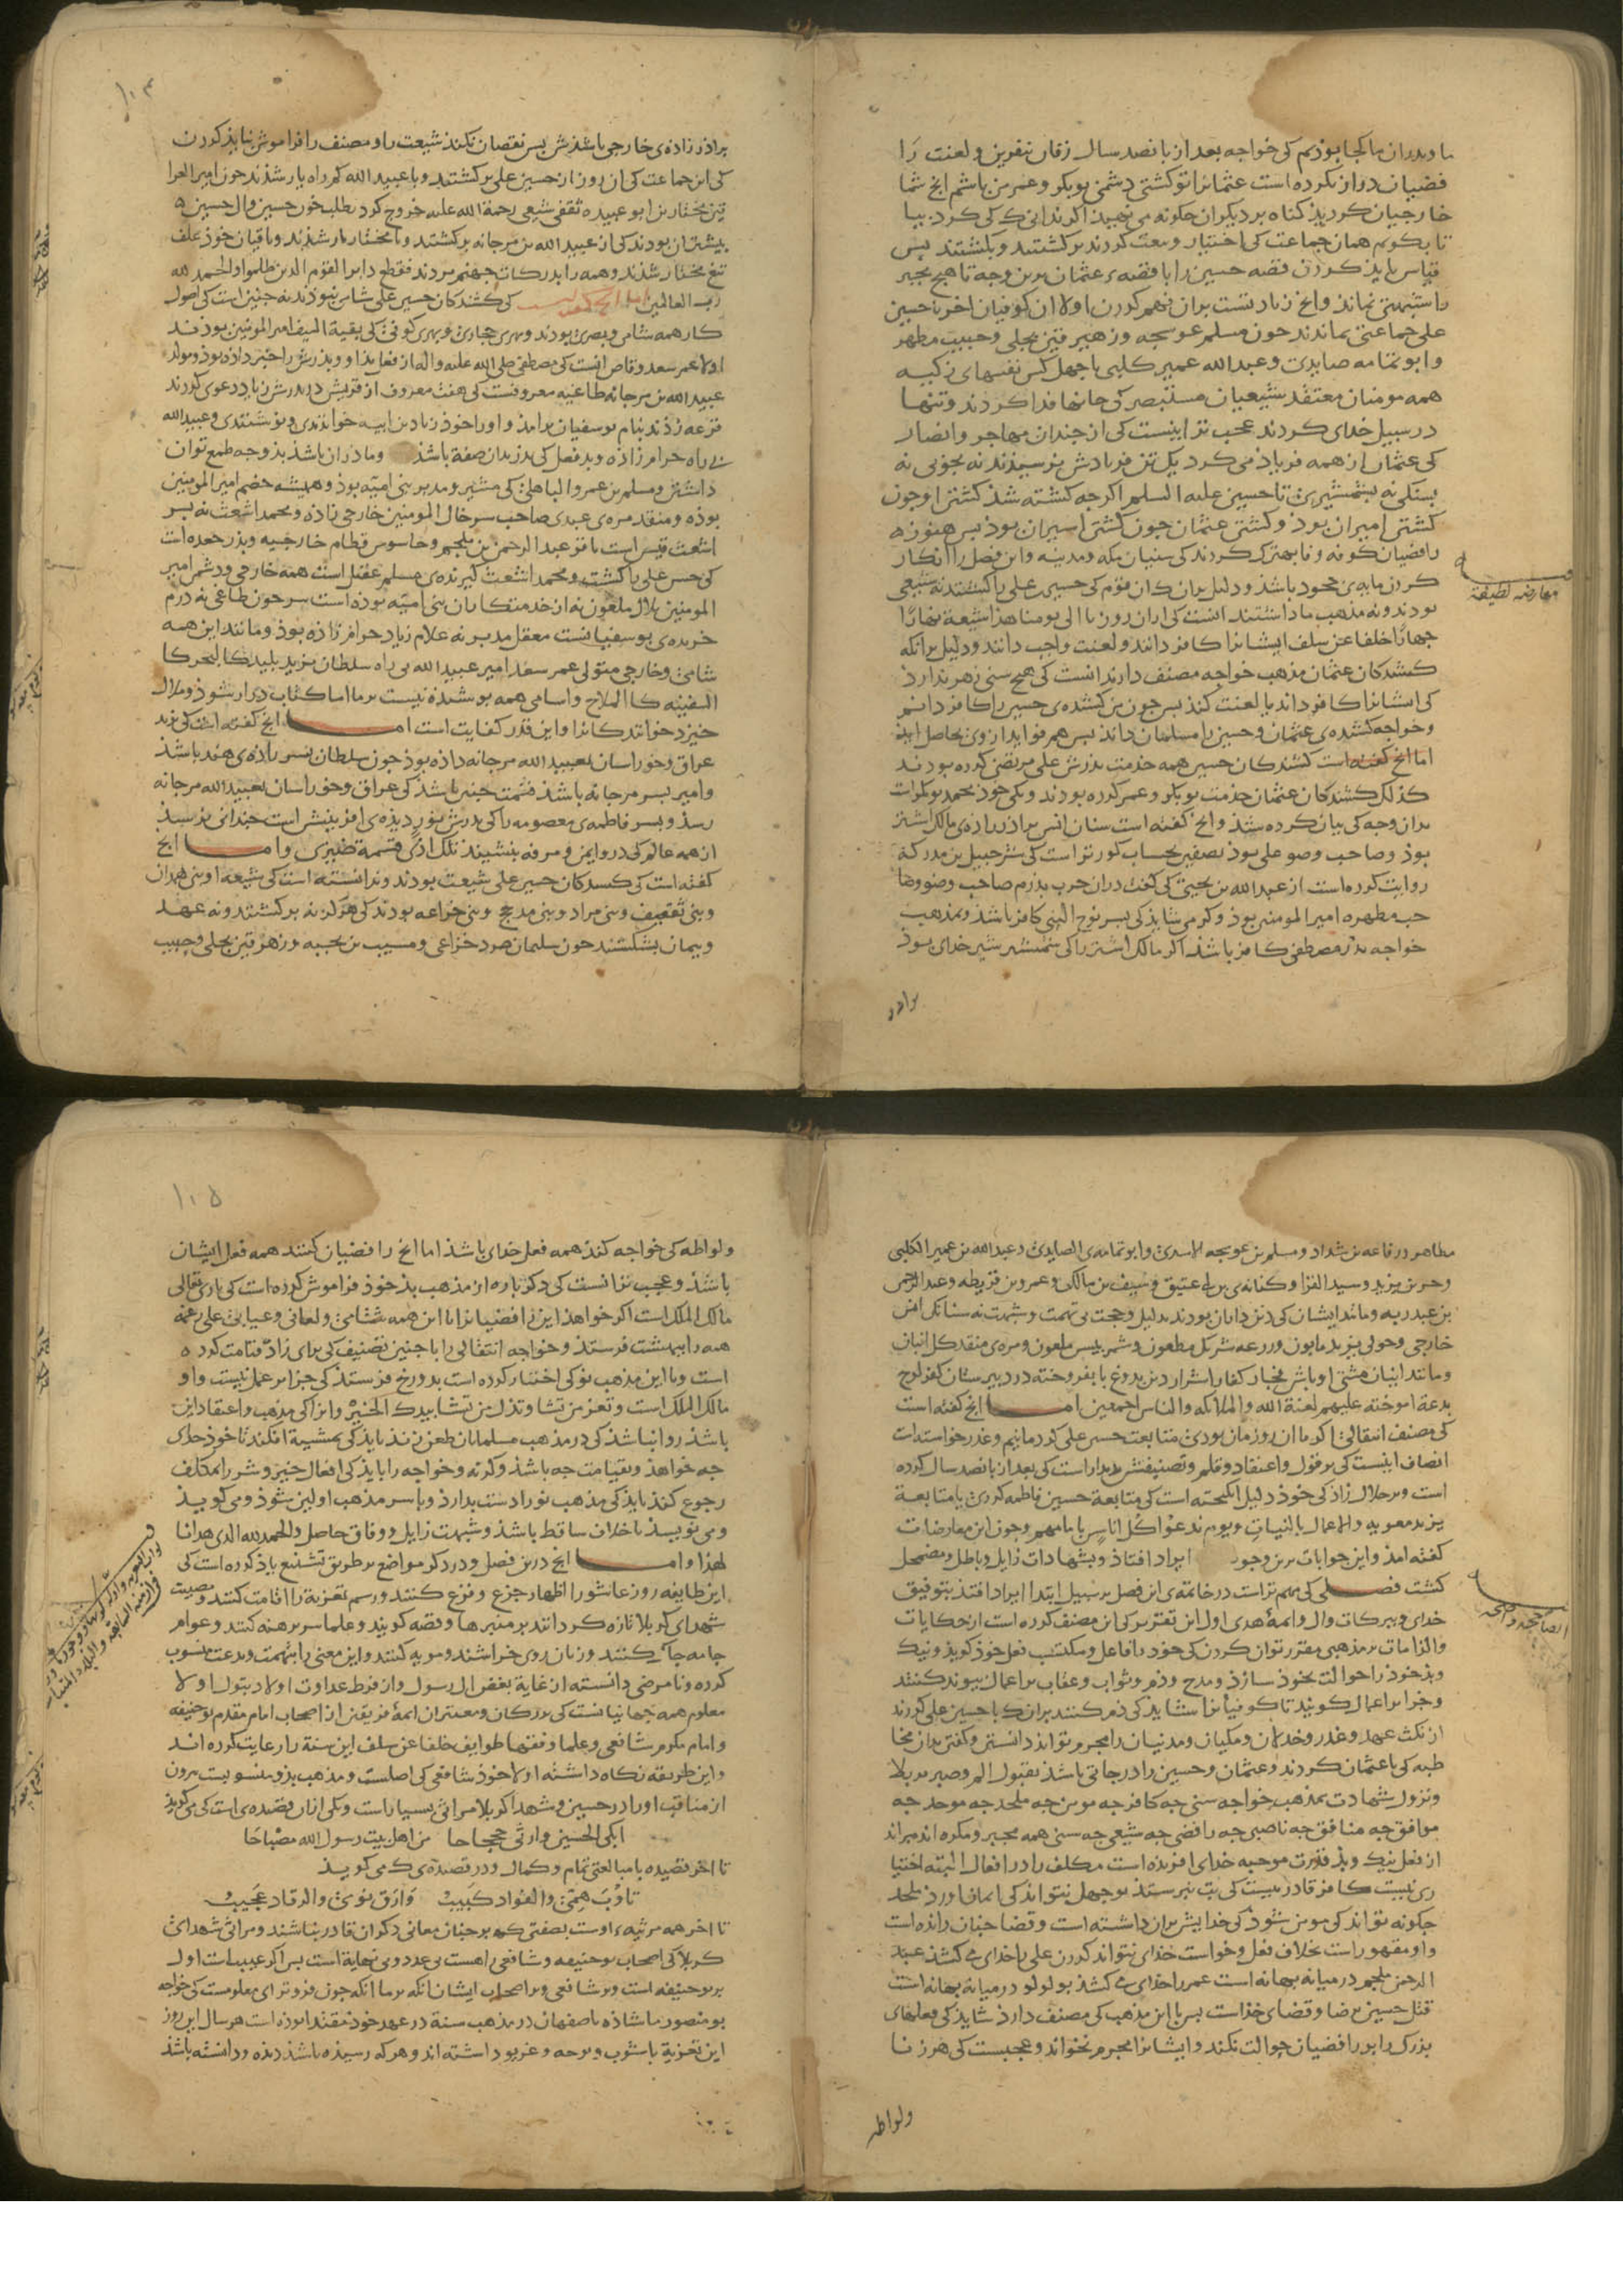 ما و پدران ما کجا بوذیم کی خواجه بعد از پانصد سال زفان بنفرین و لعنت را
فضیان دراز بکرده است عثمانرا تو کشتی دشمن بوبکر و عمر من باشم انج شما
خارجیان کردیذ کناه بر دیکران جکونه می نهیذ اکر ندانی کی کرد بیا
تا بکویم همان جماعت کی اختیار و بیعت کردند برکشتند و بکشتند بس
قیاس بایذ کردن قصه حسین را با قصه عثمان برین وجه تا هیج بجیر
را شبهتی نماند و انج زیادتست بران فهم کردن اولا ان کوفیان اخر با حسین
علی جماعتی بماندند جون مسلم عوسجه و زهیر قین بجلی و حبیب مظهر
و ابو ثمامه صایدی و عبد الله عمیر کلبی با جهل کس نفسهای زکیه
همه مومنان معتقد شیعیان مستبصر کی جانها فدا کردند و تنها
در سبیل خدای کردند عجب تر اینست کی از جندان مهاجر و انصار
کی عثمان از همه فریاذ می کرد یک تن فریادش نرسیدند نه بجوبی نه
بسنکی نه بشمشیری تا حسین علیه السلم اکرجه کشته شذ کشتن او جون
کشتن امیران بوذ و کشتن عثمان جون کشتن اسیران بوذ بس هنوزه
رافضیان کوفه وفا بهتر کردند کی سنیان مکه و مدینه و این فصل را انکار
کردن مایه ی جحود باشد و دلیل بران کان قوم کی حسین علی را کشتند نه شیعی
بودند و نه مذهب ما داشتند انست کی از ان روز تا الی یومنا هذا شیعه نهارا
جهارا خلفا عن سلف ایشانرا کافر دانند و لعنت واجب دانند و دلیل برانکه
کشندکان عثمان مذهب خواجه مصنف دارند انست کی هیج سنی زهره ندارد
کی ایشانرا کافر داند یا لعنت کند بس جون من کشنده ی حسین را کافر دانم
و خواجه کشنده ی عثمان و حسین را مسلمان داند بس هم فواید از وی بحاصل ایذ
اما انج کفته است کشندکان حسین همه خدمت بذرش علی مرتضی کرده بودند
کذلک کشندکان عثمان خدمت بوبکر و عمر کرده بودند و یکی خوذ محمد بوبکر است
بران وجه کی بیان کرده شذ و انج کفته است سنان انس براذر زاده ی مالک اشتر
بوذ و صاحب وضو علی بوذ بصفین بحساب کورتر است کی شرحبیل بن مدرکة
روایت کرده است از عبد الله بن یحیی کی کفت دران حرب بذرم صاحب وضو وصا
حب مطهره امیر المومنین بوذ و کر می شایذ کی بسر نوح النبی کافر باشد و بمذهب
خواجه بذر مصطفی کافر باشد اکر مالک اشتر را کی شمشیر شیر خدای بوذ
براذر
معارضه لطیفة
۱۰۴
براذر زاده ی خارجی باشذش بس نقصان نکند شیعت را و مصنف را فراموش نبایذ کردن
کی این جماعت کی ان روز از حسین علی برکشتند و با عبید الله کم راه یار شذند جون امیر العرا
قین مختار بن ابو عبیده ثقفی شیعی رحمة الله علیه خروج کرد بطلب خون حسین و ال حسین
بیشتر ان بودند کی از عبید الله بن مرجانه برکشتند و با مختار یار شذند و باقیان خوذ علف
تیغ مختار شذند و همه را بدرکات جهنم بردند فقطع دابر القوم الذین ظلموا و الحمد لله
رب العالمین اما انج کفته است کی کشندکان حسین علی شامی نبوذند نه جنین است کی اصول
کار همه شامی و بصری بودند و بهری حجازی و بهری کوفی کی بقیة السیف امیر المومنین بوذند
اولا عمر سعد وقاص انست کی مصطفی صلی الله علیه و اله از فعل بذ او و بذرش را خبر داذه بوذ و مولد
عبید الله بن مرجانه طاغیه معروفست کی هفت معروف از قریش در بذرش زیاد دعوی کردند
قرعه زدند بنام بوسفیان برامذ و او را خوذ زیاد بن ابیه خواندندی و نوشتندی و عبید الله
بی راه حرام زاذه و بذ فعل کی بذر بدان صفة باشذ و ماذر ان باشذ بذو جه طمع توان
داشتن و مسلم بن عمرو الباهلی کی مشیر و مدبر بنی امیه بوذ و همیشه خصم امیر المومنین
بوذه و منقذ مره ی عبدی صاحب سر خال المومنین خارجی زاذه و محمد اشعث نه بسر
اشعث قیس است با قز عبد الرحمن بن ملجم و جاسوس قطام خارجیه و بذر جعده است
کی حسن علی را کشت و محمد اشعث کیرنده ی مسلم عقیل است همه خارجی و دشمن امیر
المومنین بلال ملعون نه از خدمتکاران بنی امیه بوذه است سرجون طاغی نه درم
خریده ی بوسفیانست معقل مدبر نه غلام زیاد حرام زاذه بوذ و مانند این همه
شامی و خارجی متولی عمر سعد امیر عبید الله بی راه سلطان یزید بلید کالبحر کا
السفینه کا الملاح و اسامی همه بوشیده نیست بر ما اما کتاب دراز شوذ و ملال
خیزد خوانندکانرا و این قدر کفایت است اما انج کفته است کی یزید
عراق و خوراسان بعبید الله مرجانه داذه بوذ جون سلطان بسر زاده ی هند باشذ
و امیر بسر مرجانه باشذ قسمت جنین باشذ کی عراق و خوراسان بعبید الله مرجانه
رسذ و بسر فاطمه ی معصومه را کی بدرش نور دیذه ی افرینش است جندانی نرسیذ
از همه عالم کی در وایمن و مرفه بنشیند تلک اذن قسمة ضیزی و اما انج
کفته است کی کشندکان حسین علی شیعت بودند و ندانسته است کی شیعه او بنی همدان
و بنی ثقیف و بنی مراد و بنی مذحج و بنی خزاعه بودند کی هرکز نه برکشتند و نه عهد
و بیمان بشکستند جون سلیمان صرد خزاعی و مسیب بن نجبه و زهیر قین بجلی و حبیب
مظاهر و رفاعه بن شداد و مسلم بن عوسجه الاسدی و ابو ثمامه ی الصایدی و عبد الله بن عمیر الکلبی
و حر بن یزید و سید القرا و کنانه ی بن عتیق و سیف بن مالک و عمرو بن قریظه و عبد الرحمن
بن عبد ربه و مانند ایشان کی دین داران بودند بدلیل و حجت بی تهمت و شبهت نه سنانک انس
خارجی و خولی یزید مابون و زرعه شریک مطعون و شمر بلیس ملعون و مره ی منقذ کل انبان
بدعة اموخته علیهم لعنة الله و الملائکه و الناس اجمعین اما انج کفته است
کی مصنف انتقالی اکر ما ان روز مان بودی متابعت حسین علی کردمانیم و عذر خواسته است
انصاف اینست کی بر قول و اعتقاد و قلم و تصنیفش بدیدار است کی بعد از پانصد سال کرده
است و بر حلال زاذکی خوذ دلیل انکیخته است کی متابعة حسین فاطمه کردی یا متابعة
یزید معویه و الاعمال بالنیات و یوم ندعوا کل اناس بامامهم و جون این معارضات
کفته امذ و این جوابات برین وجوه ایراد افتاذ و شبهادات زایل و باطل و مضمحل
کشت فصلی کی مهم تر است در خاتمه ی این فصل بر سبیل ابتدا ایراد افتذ بتوفیق
خدای و ببرکات و ال و ائمهٔ هدی اول این تقریر کی این مصنف کرده است از حکایات
و الزامات بر مذهبی مقرر توان کردن کی خوذ را فاعل و مکتسب فعل خوذ کویذ و نیک
و بذ خوذ را حوالت بخوذ سازذ و مدح و ذم و ثواب و عقاب بر اعمال بیوند کنند
و جزا بر اعمال کویند تا کوفیانرا شایذ کی ذم کنند بران ک با حسین علی کردند
از نکث عهد و غدر و خذلان و مکیان و مدنیان را مجرم تواند دانستن و کفتن بدان مخا
طبه کی با عثمان کردند و عثمان و حسین را درجاتی باشذ بقبول الم و صبر بر بلا
و نزول شهادت بمذهب خواجه سنی جه کافر جه مومن جه ملحد جه موحد جه
موافق جه منافق جه ناصبی جه رافضی جه شیعی جه سنی همه مجبر و مکره اند مبراند
از فعل نیک و بذ قدرت موجبه خدای افریده است مکلف را در افعال البته اختیا
ری نیست کافر قادر نیست کی بت نپرستد بوجهل نتواند کی ایمان اورذ ملحد
جکونه تواند کی مومن شوذ کی خدایش بران داشته است و قضا جنان رانده است
و او مقهور است بخلاف فعل و خواست خدای نتواند کردن علی را خدای می کشذ عبد
الرحمن ملجم در میانه بهانه است عمر را خدای می کشذ بو لولو در میانه بهانه است
قتل حسین برضا و قضای خذاست بس با این مذهب کی مصنف دارذ شایذ کی فعلهای
بزرک را بر رافضیان حوالت نکند و ایشانرا مجرم نخواند و عجبست کی هر زنا
ولواطه
۱۰۵
ولواطه کی خواجه کند همه فعل خدای باشذ اما انج رافضیان کنند همه فعل ایشان
باشذ و عجب تر انست کی دکر باره از مذهب بذ خوذ فراموش کرده است کی باری تعالی
مالک الملک است اکر خواهذ این رافضیانرا با این همه شتامی و لعانی و عیابی علی رغمه
همه را ببهشت فرستذ و خواجه انتقالی را با جنین تصنیف کی برای زاد قیامت کرده
است و با این مذهب نو کی اختیار کرده است بدوزخ فرستذ کی جزا بر عمل نیست و او
مالک الملک است و تعز من تشا و تذل من تشا بیدک الخیر و انرا کی مذهب و اعتقاد این
باشذ روا نباشذ کی در مذهب مسلمانان طعن زند بایذ کی بمشیة افکند تا خوذ خدای
جه خواهذ و بقیامت جه باشذ و کرنه و خواجه را بایذ کی افعال خیر و شر را بمکلف
رجوع کند بایذ کی مذهب نو را دست بدارذ و با سر مذهب اولین شوذ و می کویذ
و می نویسذ تا خلاف ساقط باشذ و شبهت زایل و وفاق حاصل و الحمد لله الذی هدانا
لهذا و اما انج درین فصل و در دکر مواضع بر طریق تشنیع یاذ کرده است کی
این طایفه روز عاشورا اظهار جزع و فزع کنند و رسم تعزیة را اقامت کنند و مصیبت
شهدای کربلا تازه کردانند بر منبرها و قصه کویند و علما سر برهنه کنند و عوام
جامه جاک کنند و زنان روی خراشند و مویه کنند و این معنی را بشبهت و بدعت منسوب
کرده و نامرضی دانسته از غایة بغض ال رسول و از فرط عداوت اولاد بتول اولا
معلوم همه جهانیانست کی بزرکان و معتبران ائمهٔ فریقین از اصحاب امام مقدم بوحنیفه
و امام مکرم شافعی و علما و فقها طوایف خلفا عن سلف این سنة را رعایت کرده اند
و این طریقه نکاه داشته اولا خوذ شافعی کی اصلست و مذهب بذو منسوبست بیرون
از مناقب او را در حسین و شهدا کربلا مراثی بسیار است و یکی از ان قصیده ی است کی می کویذ
ابکی الحسین و ارثی حججاحا من اهل بیت رسول الله مصباحا
تا اخر قصیده با مبالغتی تمام و کمال و در قصیده ی ک می کویذ
تاوب همی و الفواد کئیب و ارق نومی و الرقاد عجیب
تا اخر همه مرثیه ی اوست بصفتی کی بر جنان معانی دکران قادر نباشند و مراثی شهدای
کربلا کی اصحاب بوحنیفه و شافعی را هست بی عدد و بی نهایة است بس اکر عیب است اول
بر بوحنیفه است و بر شافعی و بر اصحاب ایشان انکه بر ما انکه جون فروتر ای معلومست کی خواجه
بو منصور ماشاذه باصفهان در مذهب سنة در عهد خوذ مقتدا بوذه است هر سال این روز
این تعزیة باشوب و نوحه و غریو داشته اند و هر که رسیذه باشذ دیذه و دانسته باشذ